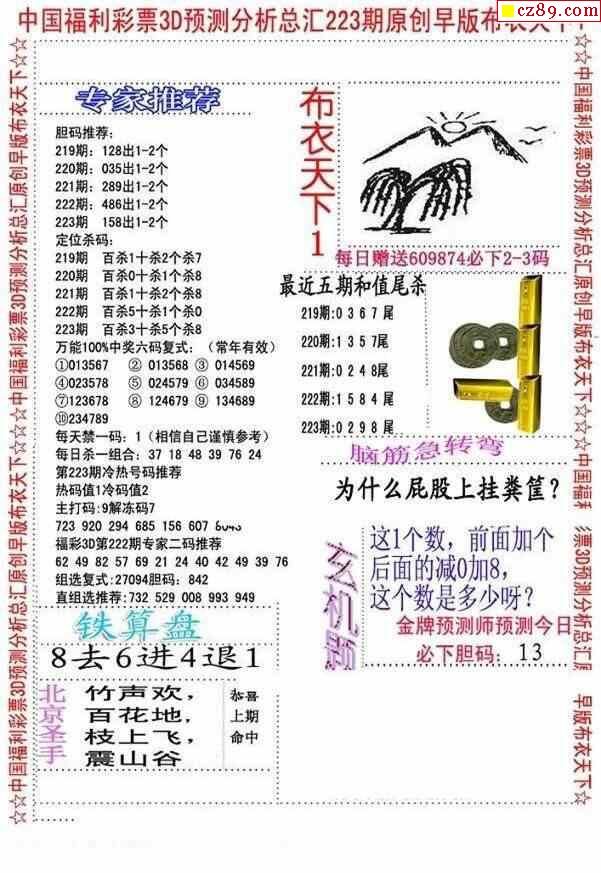 中国福利彩票3D预测分析总汇223期原创早版布衣天下
cz89.com
☆☆中国福利彩票3D预测分析总汇原创早版布衣天下☆☆中国福利彩票3D预测分析总汇原创早版布衣天下☆
专家推荐
胆码推荐:
219期: 128出1-2个
220期: 035出1-2个
221期: 289出1-2个
222期: 486出1-2个
223期 158出1-2个
定位杀码:
219期 百杀1十杀2个杀7
220期 百杀0十杀1个杀8
221期 百杀1十杀2个杀8
222期 百杀5十杀1个杀0
223期 百杀3十杀5个杀8
万能100%中奖六码复式:（常年有效）
①013567 ②013568 ③014569
④023578 ⑤024579 ⑥034589
⑦123678 ⑧124679 ⑨134689
⑩234789
每天禁一码: 1（相信自己谨慎参考）
每日杀一组合: 37 18 48 39 76 24
第223期冷热号码推荐
热码值1冷码值2
主打码:9解冻码7
723 920 294 685 156 607
福彩3D第222期专家二码推荐
62 49 82 57 69 21 24 40 42 49 39 76
组选复式:27094胆码: 842
直组选推荐:732 529 008 993 949
铁算盘
8去6进4退1
北京圣手
竹声欢,
百花地,
枝上飞,
震山谷
恭喜
上期
命中
布衣天下1
每日赠送609874必下2-3码
最近五期和值尾杀
219期:0 3 6 7 尾
220期:1 3 5 7尾
221期:0 2 4 8尾
222期:1 5 8 4 尾
223期:0 2 9 8 尾
脑筋急转弯
为什么屁股上挂粪筐?
玄机题
这1个数, 前面加个
后面的减0加8,
这个数是多少呀?
金牌预测师预测今日
必下胆码: 13
☆☆中国福利彩票3D预测分析总汇原创早版布衣天下☆☆中国福利
彩票3D预测分析总汇原
早版布衣天下☆